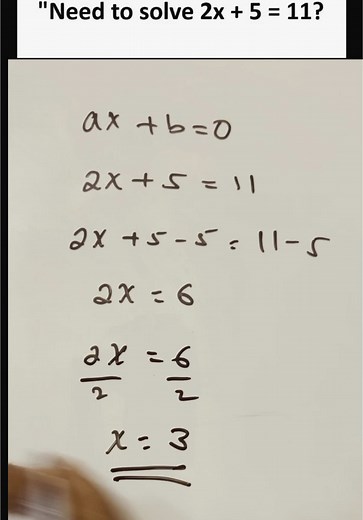 "Need to solve 2x + 5 = 11?
ax + b = 0
2x + 5 = 11
2x + 5 - 5 = 11 - 5
2x = 6
2x/2 = 6/2
x = 3